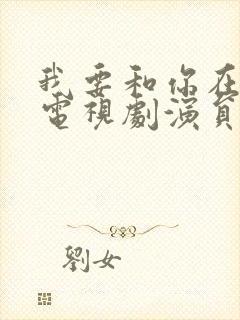 我要和你在
電視劇演員
劉女